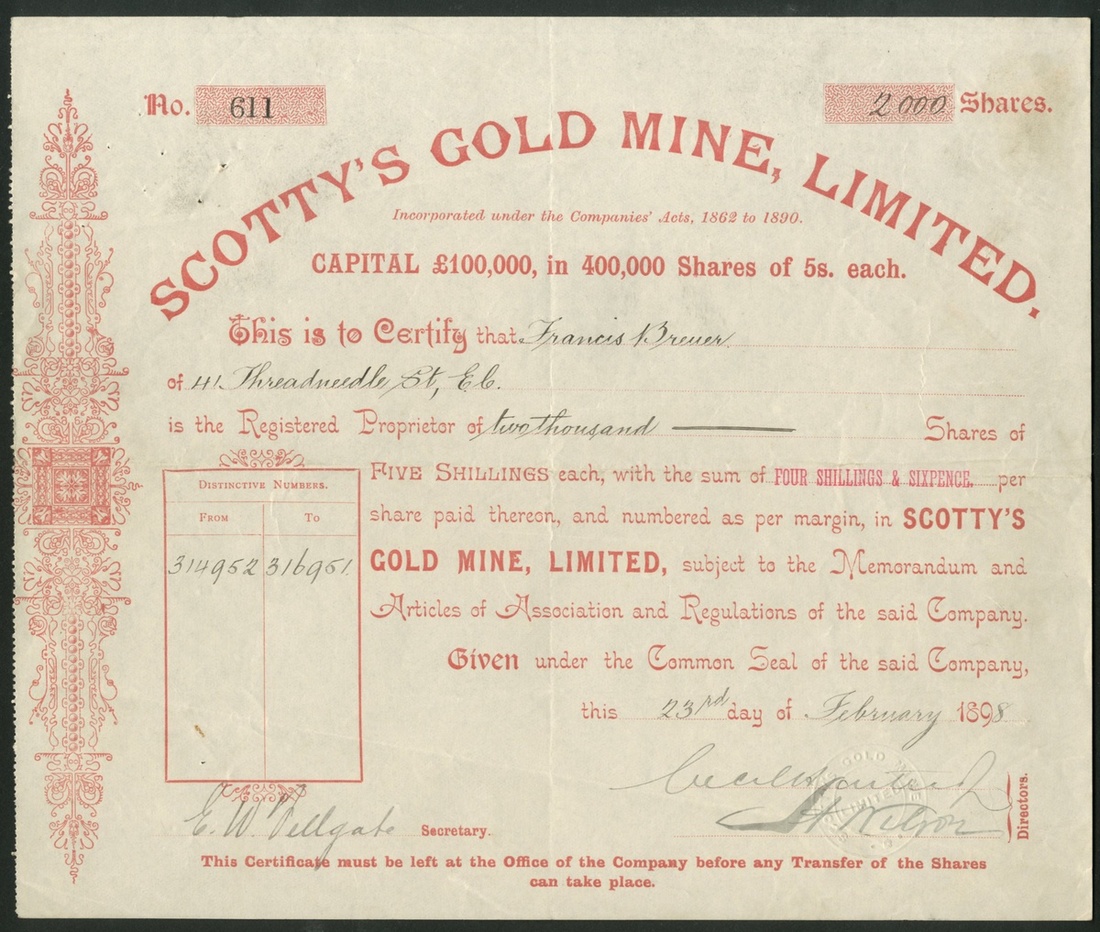 No. 611
2000 Shares.
SCOTTY'S GOLD MINE, LIMITED.
Incorporated under the Companies' Acts, 1862 to 1890.
CAPITAL £100,000, in 400,000 Shares of 5s. each.
This is to Certify that Francis Breuer
of 41 Threadneedle St, E.C.
is the Registered Proprietor of two thousand Shares of
FIVE SHILLINGS each, with the sum of FOUR SHILLINGS & SIXPENCE, per
share paid thereon, and numbered as per margin, in SCOTTY'S
GOLD MINE, LIMITED, subject to the Memorandum and
Articles of Association and Regulations of the said Company.
DISTINCTIVE NUMBERS.
FROM TO
314952 316951
Given under the Common Seal of the said Company,
this 23rd day of February 1898
E. W. Fellgate Secretary.
Directors.
This Certificate must be left at the Office of the Company before any Transfer of the Shares
can take place.